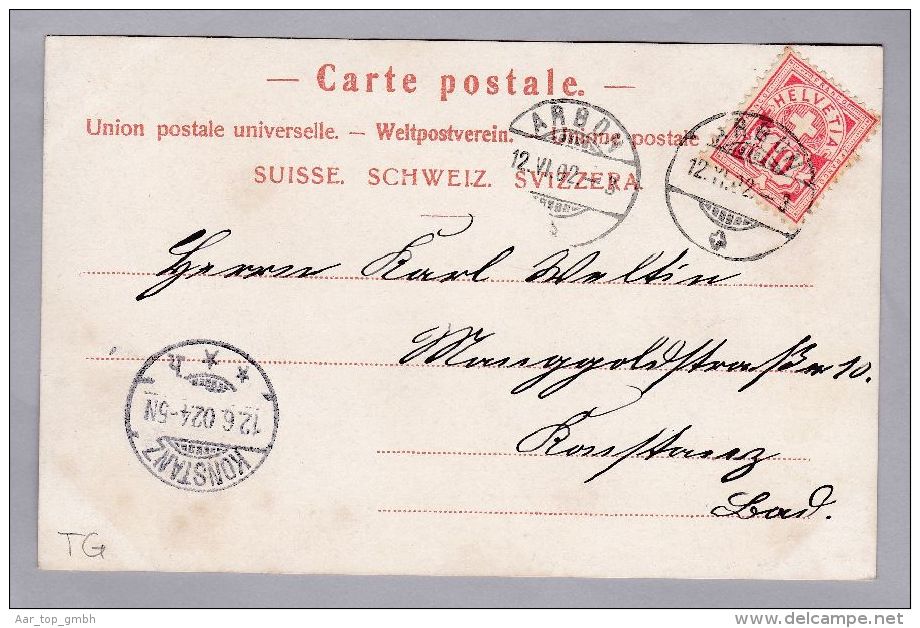 — Carte postale. —
Union postale universelle. — Weltpostverein. — Unione postale
SUISSE. SCHWEIZ. SVIZZERA.
HELVETIA
10
ARBON
12.VI.02.–3
12.VI.02.–3
Herrn Karl Weltin
Manggoldstraße 10.
Konstanz
Bad.
KONSTANZ
12.6.02.4-5N
TG
Aar_top_gmbh
www.delcampe.net